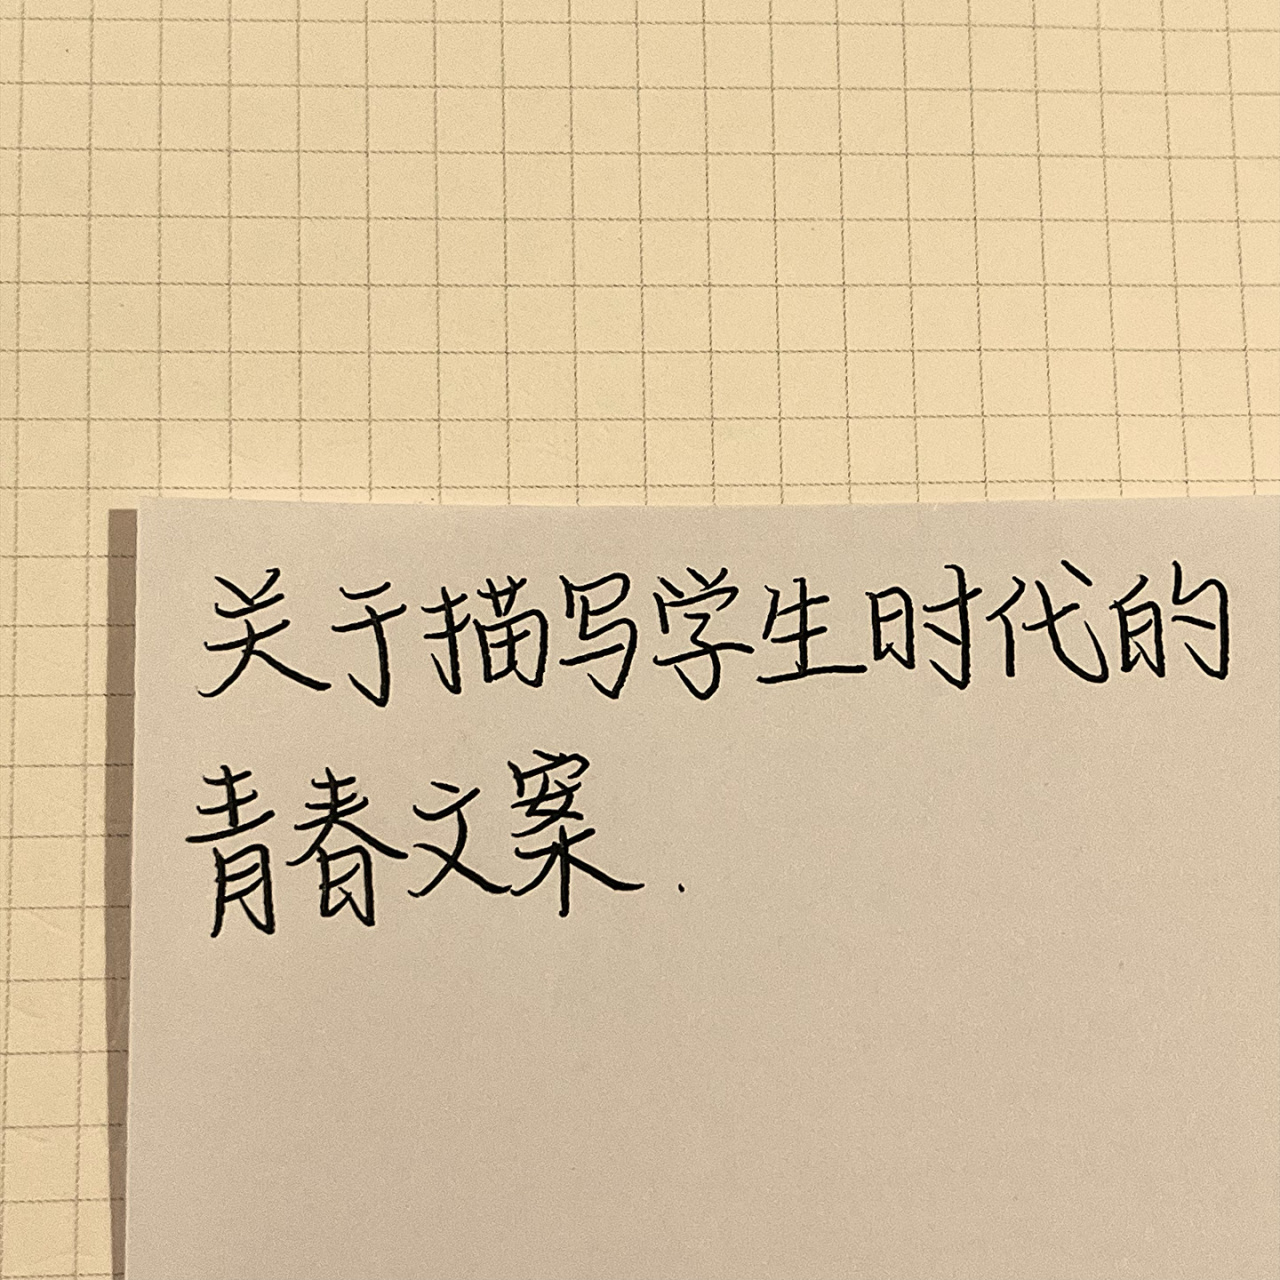 关于描写学生时代的
青春文案.